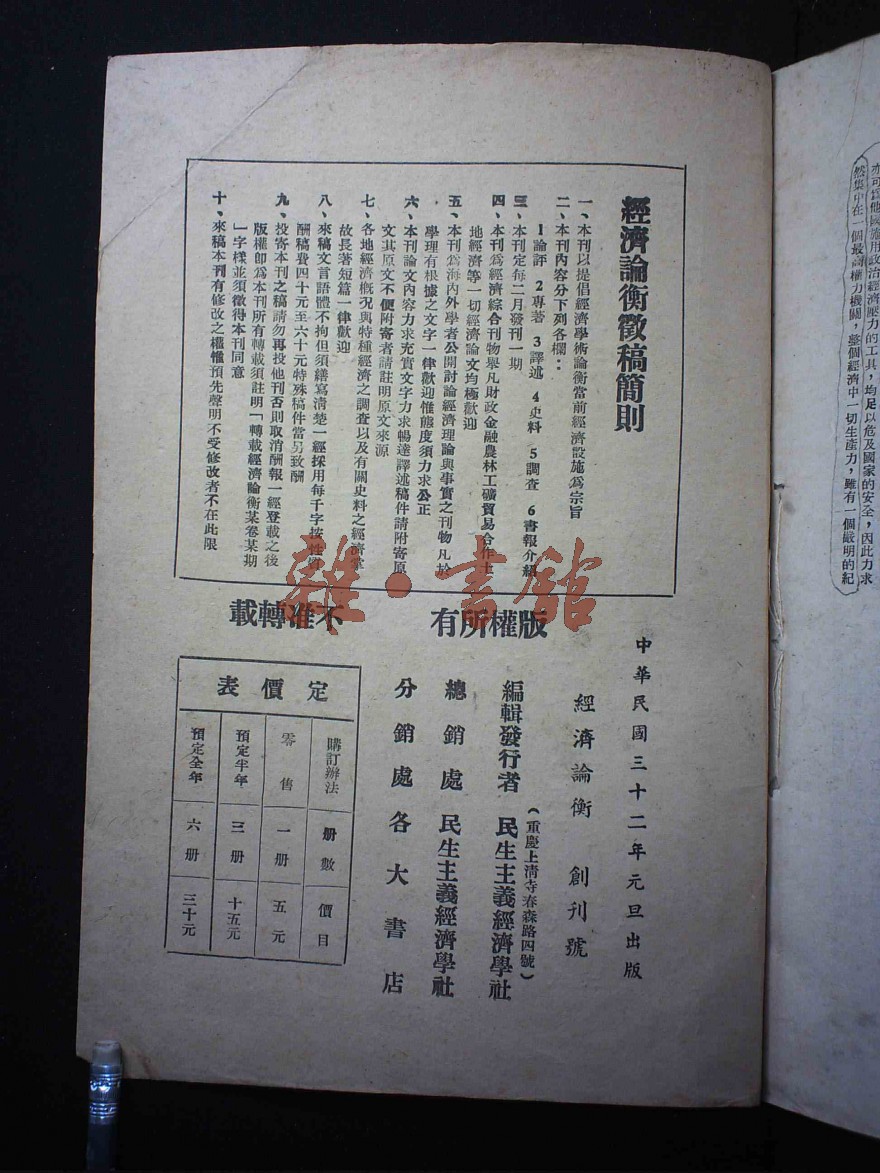 經濟論衡徵稿簡則
一、本刊以提倡經濟學術論衡當前經濟設施為宗旨
二、本刊內容分下列各欄：
1論評　2專著　3譯述　4史料　5調查　6書報介紹
三、本刊定每二月發刊一期
四、本刊為經濟綜合刊物舉凡財政金融農林工礦貿易合作土
地經濟等一切經濟論文均極歡迎
五、本刊為海內外學者公開討論經濟理論與事實之刊物凡於
學理有根據之文字一律歡迎惟態度須力求公正
六、本刊論文內容力求充實文字力求暢達譯述稿件請附寄原
文其原文不便附寄者請註明原文來源
七、各地經濟概況與特種經濟之調查以及有關史料之經濟掌
故長著短篇一律歡迎
八、來稿文言語體不拘但須繕寫清楚一經採用每千字按性質
酬稿費四十元至六十元特殊稿件當另致酬
九、投寄本刊之稿請勿再投他刊否則取消酬報一經登載之後
版權即為本刊所有轉載須註明「轉載經濟論衡某卷某期
」字樣並須徵得本刊同意
十、來稿本刊有修改之權惟預先聲明不受修改者不在此限
版權所有
不准轉載
雜·書館
中華民國三十二年元旦出版
經濟論衡　創刊號
編輯發行者　民生主義經濟學社
（重慶上清寺春森路四號）
總銷處　民生主義經濟學社
分銷處各大書店
定價表
購訂辦法　冊數　價目
零售　一冊　五元
預定半年　三冊　十五元
預定全年　六冊　三十元
亦可為他國憑用政治經濟壓力的工具，均足以危及國家的安全，因此力求
然集中在一個最高權力機關，整個經濟中一切生產力，雖有一個嚴明的紀